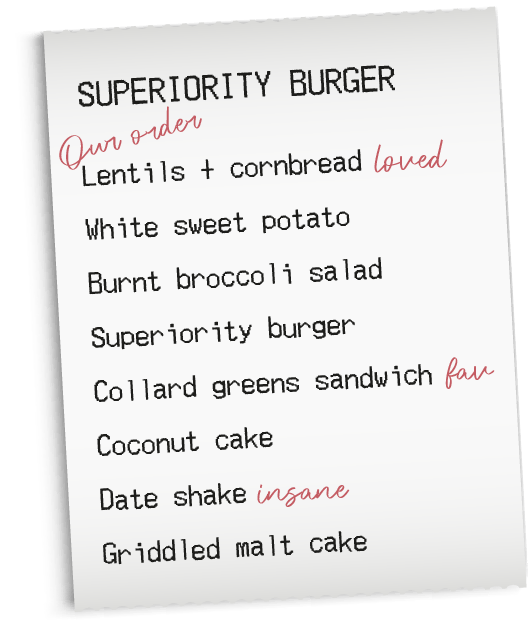 SUPERIORITY BURGER
Our order
Lentils + cornbread loved
White sweet potato
Burnt broccoli salad
Superiority burger
Collard greens sandwich fav
Coconut cake
Date shake insane
Griddled malt cake